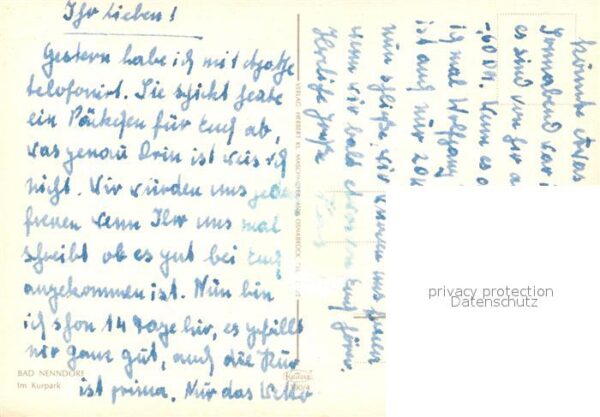 Ihr Lieben!
Gestern habe ich mit
telefonirt. Sie schickt heute
ein Päckchen für Euch ab,
was genau Drin ist weis ich
nicht. Wir würden uns jeden
freuen wenn Ihr uns mal
schreibt ob es gut bei Euch
angekommen ist. Nun bin
ich schon 14 Tage hir, es gefällt
mir ganz gut, auch die Kur
ist prima. Nur das Wetter
könnte etwas
Sonnabend war
es sind von hir a
-,60 DM. Wenn es
ich mal Wolfgang
ist auch nur 20 K
nun schließe, wir würden uns freuen
wenn wir bald etwas von Euch hören.
Herzliche Grüße
VERLAG HERBERT
BAD NENNDORF
Im Kurpark
privacy protection
Datenschutz